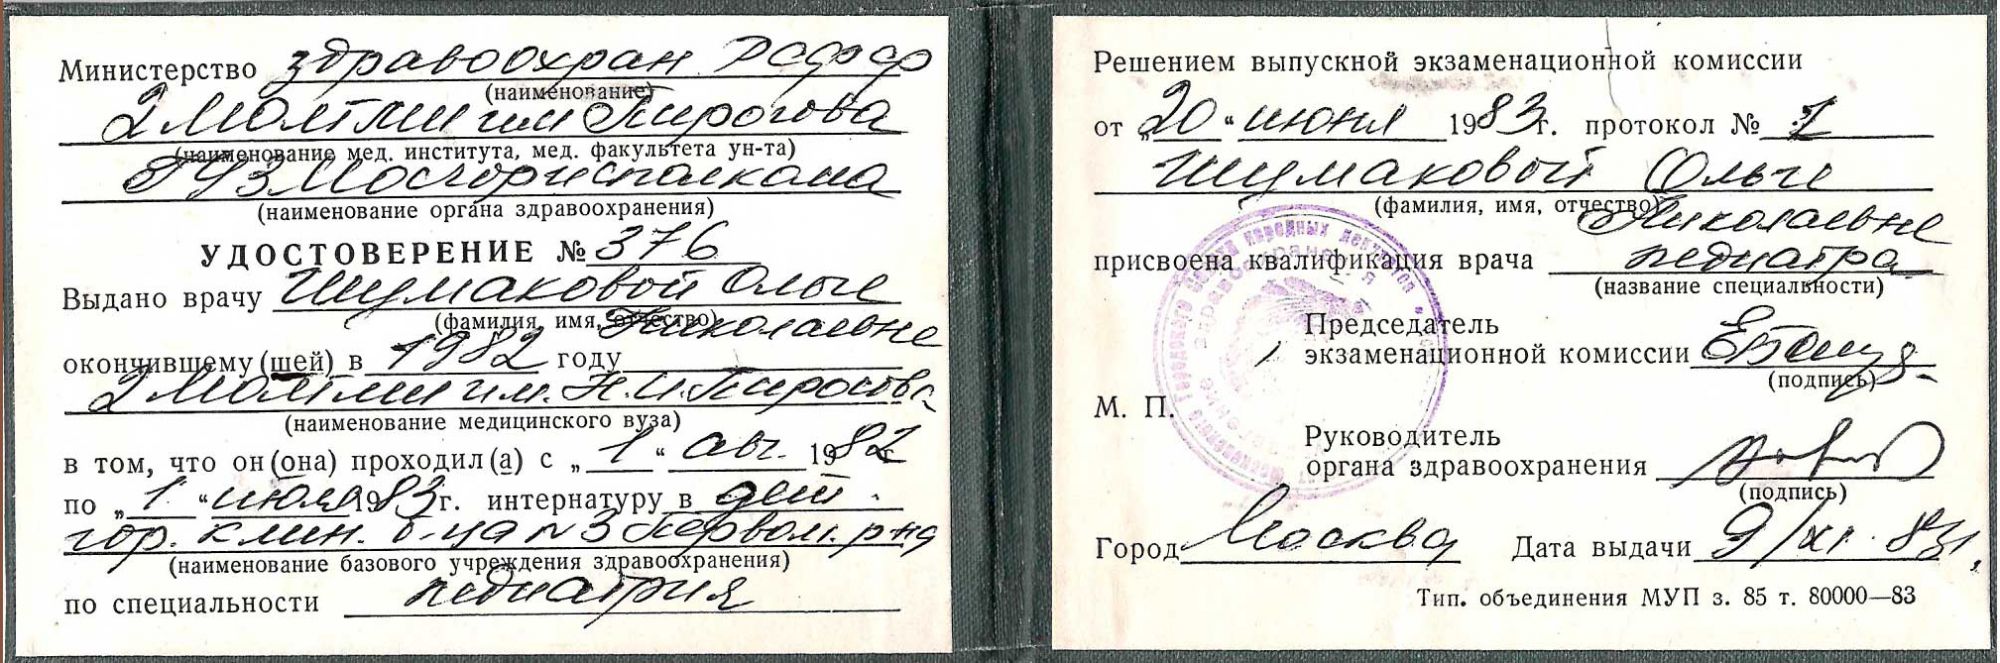 Министерство здравоохран. РСФСР
(наименование)
2 МОЛГМИ им Пирогова
(наименование мед. института, мед. факультета ун-та)
ГУЗ Мосгорисполкома
(наименование органа здравоохранения)
УДОСТОВЕРЕНИЕ № 376
Выдано врачу Шумаковой Ольге
(фамилия, имя, отчество) Николаевне
окончившему (шей) в 1982 году
2 МОЛГМИ им. Н.И. Пирогова
(наименование медицинского вуза)
в том, что он (она) проходил (а) с „1“ авг. 1982
по „1“ июля 1983 г. интернатуру в дет.
гор. клин. б-ца N3 Первом. р-на
(наименование базового учреждения здравоохранения)
по специальности педиатрия
Решением выпускной экзаменационной комиссии
от „20“ июня 1983 г. протокол № 1
Шумаковой Ольге
(фамилия, имя, отчество) Николаевне
присвоена квалификация врача педиатра
(название специальности)
Председатель
экзаменационной комиссии
(подпись)
М. П.
Руководитель
органа здравоохранения
(подпись)
Город Москва Дата выдачи 9/XI. 83г.
Тип. объединения МУП з. 85 т. 80000—83